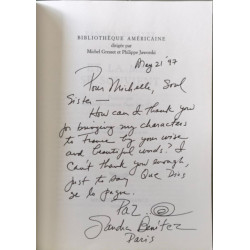 BIBLIOTHÈQUE AMÉRICAINE
dirigée par
Michel Gresset et Philippe Jaworski
May 21 '97
Pour Michelle, Soul
Sister—
How can I thank you
for bringing my characters
to France by your wise
and beautiful words? I
can't thank you enough,
just to say Que Dios
se lo pague.
Paz,
Sandra Benítez
Paris